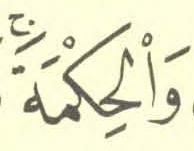 وَالْحِكْمَةَ ۚ